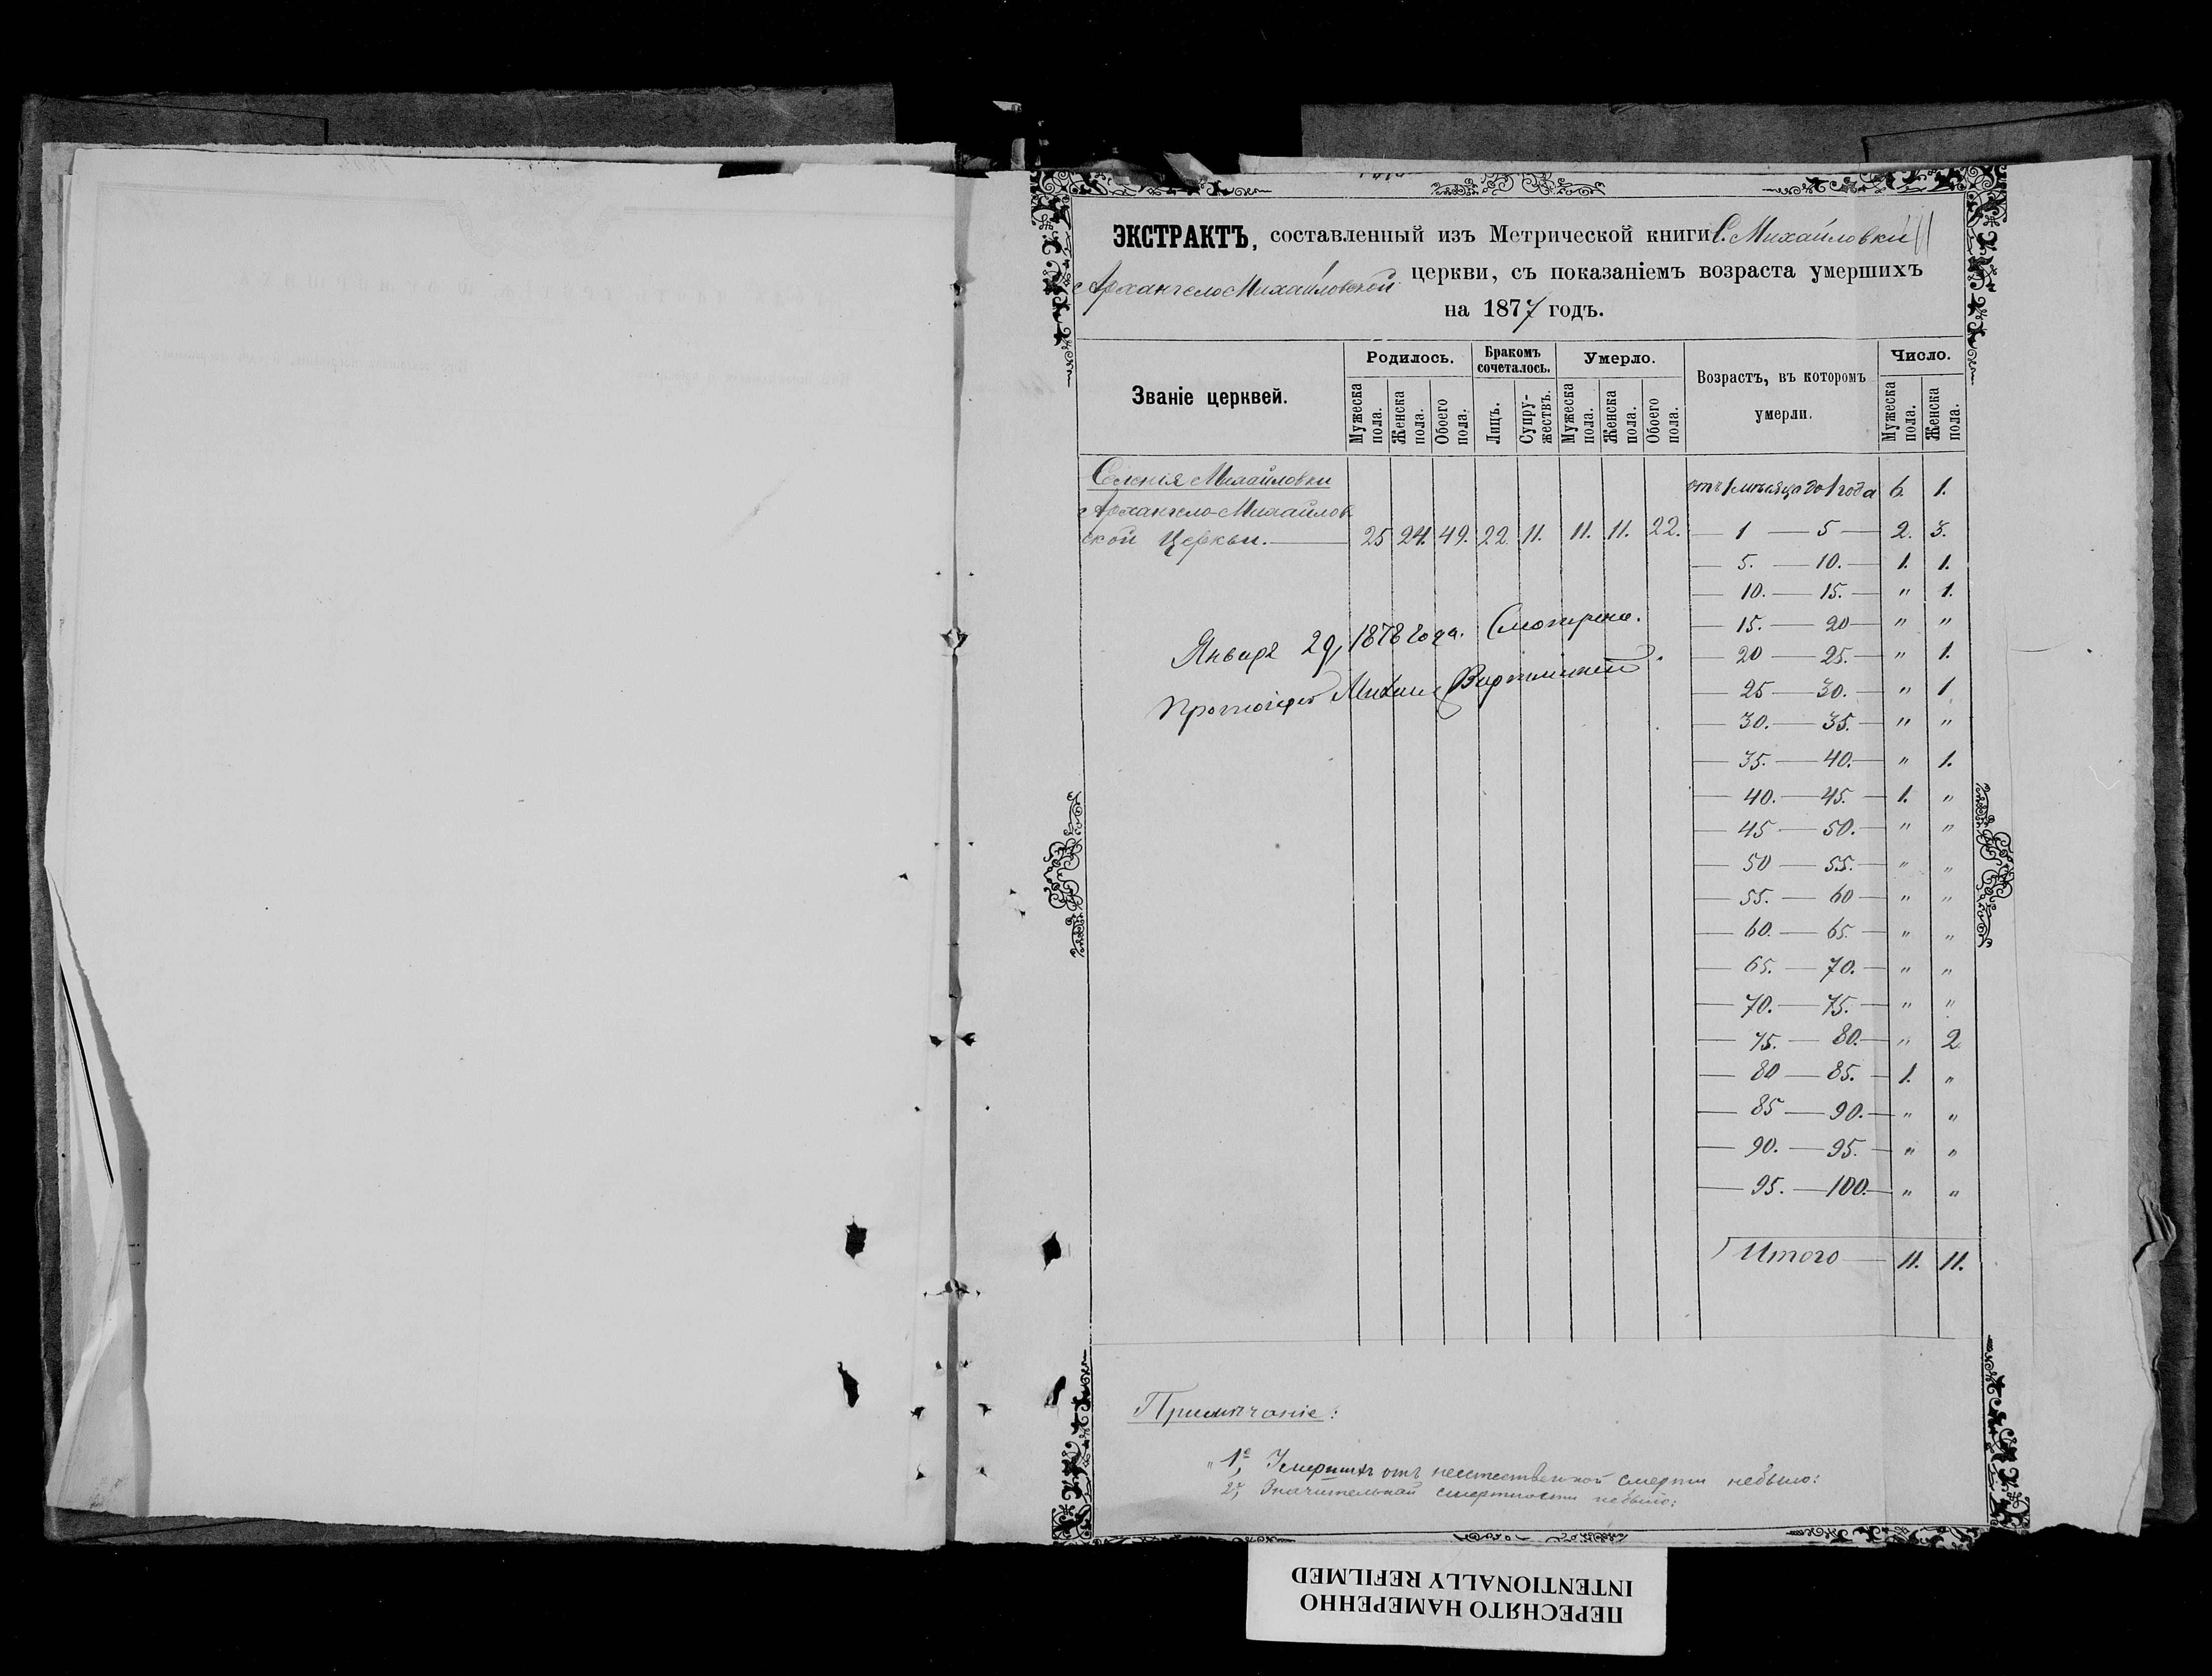 ЭКСТРАКТЪ, составленный изъ Метрической книги С. Михайловки
Архангело Михайловской церкви, съ показаніемъ возраста умершихъ
на 1877 годъ.
Званіе церквей. Родилось. Бракомъ сочеталось. Умерло. Возрастъ, въ которомъ умерли. Число.
Мужеска пола. Женска пола. Обоего пола. Лицъ. Супружествъ. Мужеска пола. Женска пола. Обоего пола. Мужеска пола. Женска пола.
Селенія Михайловки
отъ 1 мѣсяца до 1 года 6. 1.
Архангело-Михайлов
ской Церкви. — 25 24. 49. 22. 11. 11. 11. 22. — 1 — 5 — 2. 3.
— 5. — 10. — 1. 1.
— 10. — 15. — " 1.
— 15. — 20 — " "
— 20 — 25. — " 1.
— 25 — 30. — " 1.
— 30. — 35. — " "
— 35. — 40. — " 1.
— 40. — 45. — 1. "
— 45 — 50. — " "
— 50 — 55. — " "
— 55. — 60 — " "
— 60. — 65. — " "
— 65. — 70. — " "
— 70. — 75. — " "
— 75. — 80. — " 2
— 80 — 85. — 1. "
— 85 — 90. — " "
— 90. — 95. — " "
— 95. — 100. — " "
Итого — 11. 11.
Января 29, 1878 года.
Протоіерей Михаил
Примѣчаніе:
1е, Умершихъ отъ неестественной смерти небыло:
2е, Значительной смертности небыло:
ПЕРЕСНЯТО НАМЕРЕННО
INTENTIONALLY REFILMED